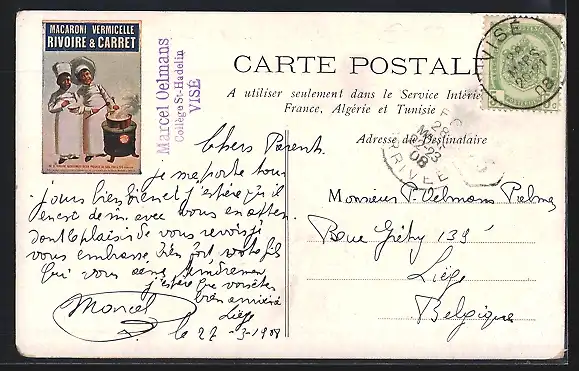 MACARONI VERMICELLE
RIVOIRE & CARRET
Marcel Oelmans
Collège St-Hadelin
VISÉ
CARTE POSTALE
A utiliser seulement dans le Service Intérie
France, Algérie et Tunisie
Adresse du Destinataire
VISÉ
08
ARRIVÉE
08
Chers Parents
je me porte tous
jours bien et j'espère qu'il
en est de m. avec vous en atten
dant le plaisir de vous revoir je
vous embrasse bien fort votre fils
qui vous aime tendrement
j'espère que vous êtes
bien arrivés à
Liège
Marcel
le 27-3-1908
Monsieur P. Oelmans
Rue Grétry 139
Liège
Belgique